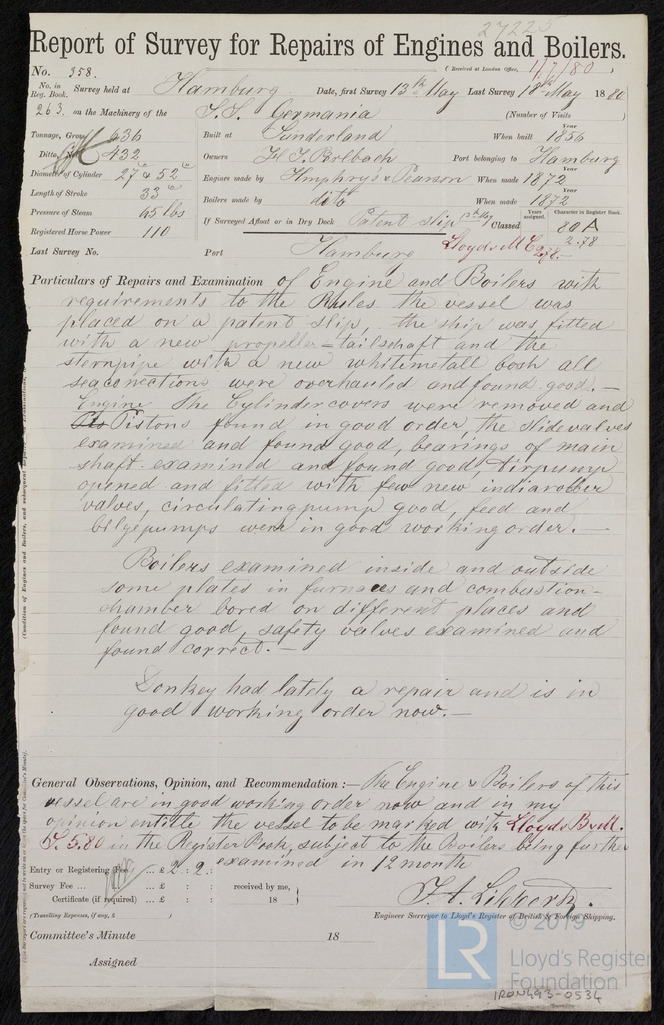 27225
Report of Survey for Repairs of Engines and Boilers.
No. 358. (Received at London Office, 1/7/80 )
No. in Reg. Book. Survey held at Hamburg Date, first Survey 13th May Last Survey 18th May 1880
263. on the Machinery of the S.S. Germania (Number of Visits )
Tonnage, Gross 636 Built at Sunderland When built Year 1856
Ditto, Net 432 Owners Port belonging to Hamburg
Diameter of Cylinder 27 & 52 Engines made by Humphry's & Pearson When made Year 1872
Length of Stroke 33 Boilers made by dito When made Year 1872
Pressure of Steam 45 lbs If Surveyed Afloat or in Dry Dock Patent slip Classed Years assigned. Character in Register Book. 80 A
Registered Horse Power 110 2.78
Last Survey No. Port Hamburg Lloyds M C
Particulars of Repairs and Examination of Engine and Boilers with
requirements to the Rules the vessel was
placed on a patent slip, the ship was fitted
with a new propeller=tailschaft and the
sternpipe with a new whitemetall bosh all
seaconections were overhauled and found good.—
Engine. The Cylindercovers were removed and
Pistons found in good order, the slidevalves
examined and found good, bearings of main
shaft examined and found good, airpump
opened and fitted with few new indiarobber
valves, circulatingpump good, feed and
bilgepumps were in good working order.—
Boilers examined inside and outside
some plates in furnaces and combustion-
chamber bored on different places and
found good, safety valves examined and
found correct.—
Donkey had lately a repair and is in
good working order now.—
General Observations, Opinion, and Recommendation :— The Engine & Boilers of this
vessel are in good working order now and in my
opinion entitle the vessel to be marked with Lloyds
5.80 in the Register Book, subject to the Boilers being further
examined in 12 month
Entry or Registering Fee ... £ 2 : 2 :
Survey Fee ... ... £ : : received by me,
Certificate (if required) ... £ : : 18
(Travelling Expenses, if any, £ )
Engineer Surveyor to Lloyd's Register of British & Foreign Shipping.
Committee's Minute 18
Assigned
© 2019
LR Lloyd's Register
Foundation
IRON493-0534